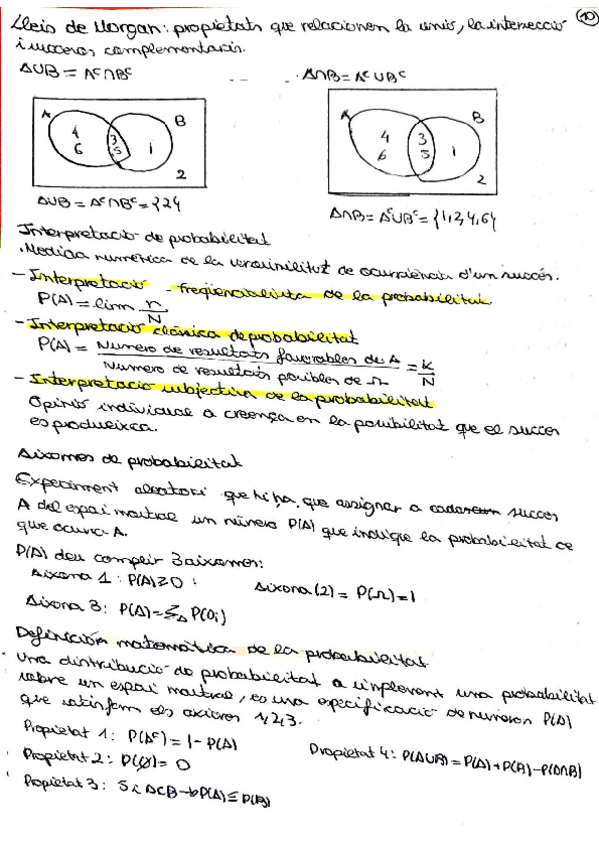 Lleis de Morgan: propietats que relacionen la unió, la intersecció 10
i succesos complementaris.
A∪B = Aᶜ∩Bᶜ
A∩B = Aᶜ∪Bᶜ
A 4 3 B
6 5 1
2
A 4 3 B
6 5 1
2
A∪B = Aᶜ∩Bᶜ = {2}
A∩B = Aᶜ∪Bᶜ = {1,2,4,6}
Interpretació de probabilitat
· Medida numèrica de la versimilitut de ocurrència d'un succés.
- Interpretació freqüencialista de la probabilitat
P(A) = lim n/N
- Interpretació clàssica de probabilitat
P(A) = Numero de resultats favorables de A / Numero de resultats posibles de Ω = K/N
- Interpretació subjectiva de la probabilitat
Opinió individual o creença en la posibilitat que el succes
es produeixca.
Aixomes de probabilitat
Experiment aleatori que hi ha que assignar a succes
A del espai mostral un número P(A) que indique la probabilitat de
que ocurra A.
P(A) deu complir 3 aixomes:
Aixoma 1: P(A)≥0
Aixoma (2) = P(Ω)=1
Aixoma 3: P(A)=Σ_A P(Oᵢ)
Definición matemàtica de la probabilitat
Una distribució de probabilitat o simplement una probabilitat
sobre un espai mostral, es una especificació de numeros P(A)
que satisfem els axiomes 1,2,3.
Propietat 1: P(Aᶜ) = 1 - P(A)
Propietat 4: P(A∪B) = P(A)+P(B)-P(A∩B)
Propietat 2: P(∅) = 0
Propietat 3: Si A⊂B → P(A) ≤ P(B)